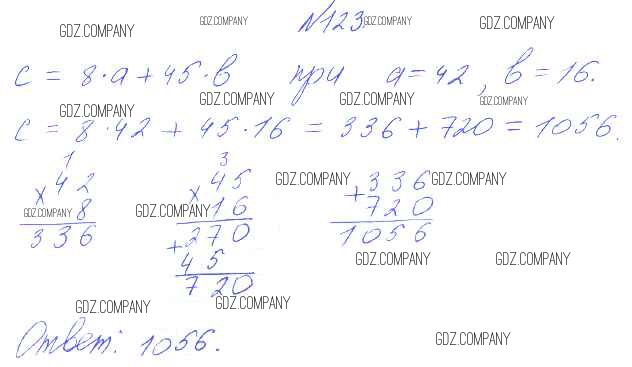 GDZ.COMPANY №123. GDZ.COMPANY GDZ.COMPANY
c = 8·a + 45·b при a = 42, b = 16.
GDZ.COMPANY GDZ.COMPANY GDZ.COMPANY GDZ.COMPANY
c = 8·42 + 45·16 = 336 + 720 = 1056.
1 3
×42 ×45 GDZ.COMPANY +336 GDZ.COMPANY
GDZ.COMPANY 8 GDZ.COMPANY 16 720
336 +270 1056
45 GDZ.COMPANY GDZ.COMPANY
720
GDZ.COMPANY GDZ.COMPANY
Ответ: 1056. GDZ.COMPANY